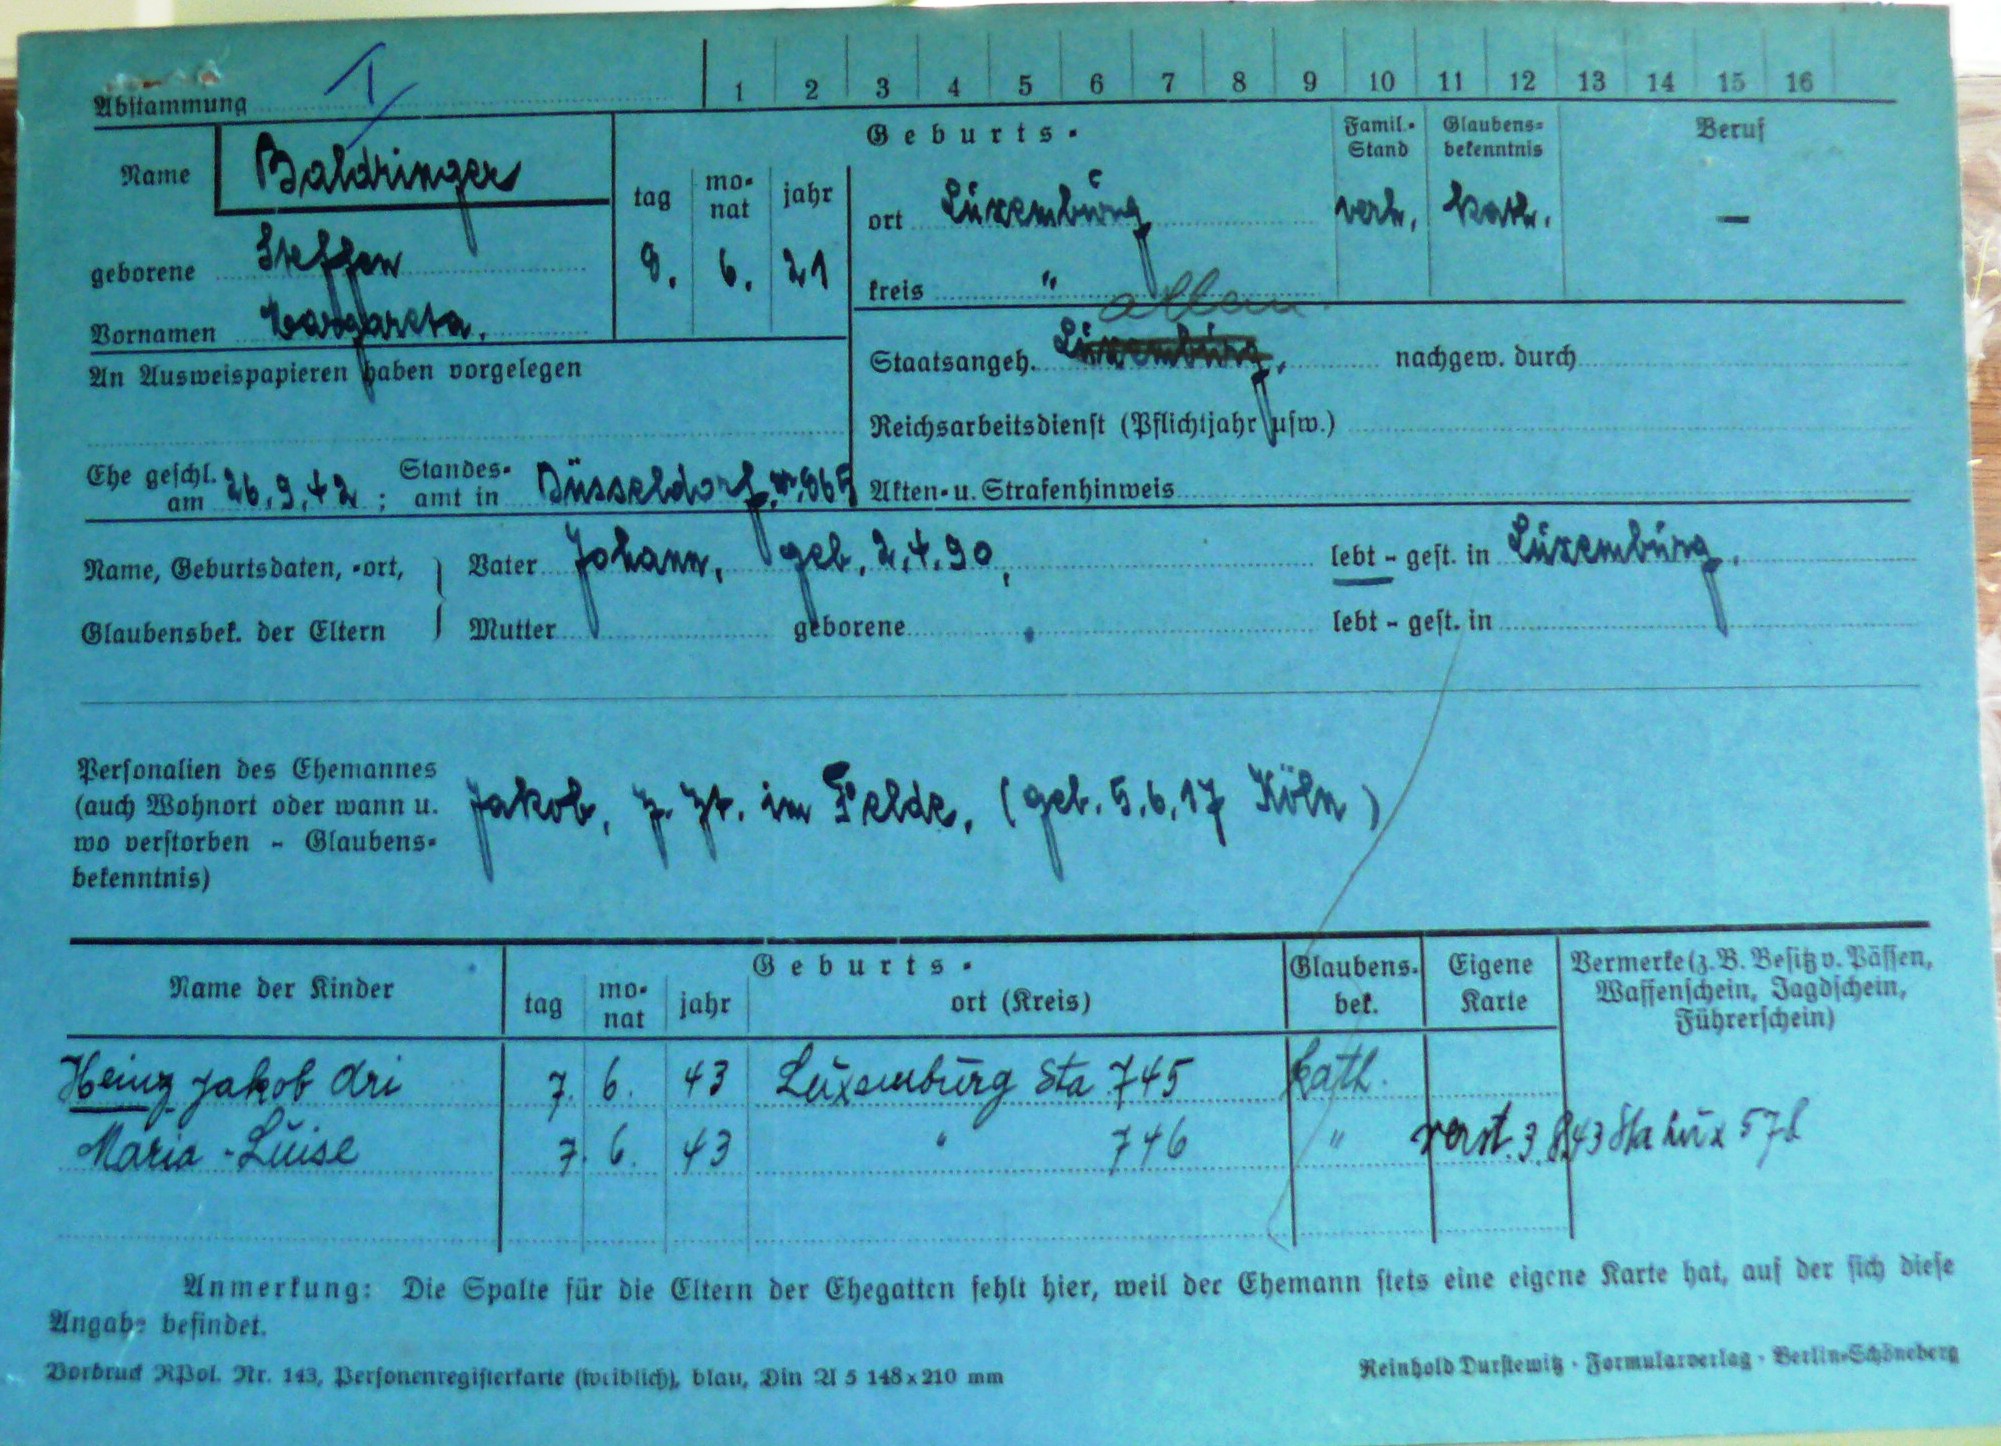 Abstammung
1 2 3 4 5 6 7 8 9 10 11 12 13 14 15 16
Name Baldringer
geborene Steffen
Vornamen Margareta.
Geburts-
tag monat jahr
8. 6. 21
ort Luxemburg
kreis "
Famil.-Stand verh.
Glaubensbekenntnis kath.
Beruf —
An Ausweispapieren haben vorgelegen
Staatsangeh. Luxemburg, nachgew. durch
Reichsarbeitsdienst (Pflichtjahr usw.)
Ehe geschl. am 26.9.42; Standesamt in Düsseldorf,
Akten- u. Strafenhinweis
Name, Geburtsdaten, -ort, Glaubensbek. der Eltern
Vater Johann, geb. 2.4.90, lebt - gest. in Luxemburg.
Mutter geborene lebt - gest. in
Personalien des Ehemannes
(auch Wohnort oder wann u.
wo verstorben - Glaubens-
bekenntnis)
Jakob, z. Zt. im Felde, (geb. 5.6.17 Köln)
Name der Kinder
Geburts-
tag monat jahr ort (Kreis)
Glaubens-bek.
Eigene Karte
Vermerke (z. B. Besitz v. Pässen,
Waffenschein, Jagdschein,
Führerschein)
Heinz Jakob 7. 6. 43 Luxemburg Sta 745 Kath.
Maria-Luise 7. 6. 43 " 746 " verst. 3.8.43 Sta Lux 578
Anmerkung: Die Spalte für die Eltern der Ehegatten fehlt hier, weil der Ehemann stets eine eigene Karte hat, auf der sich diese
Angabe befindet.
Vordruck RPol. Nr. 143, Personenregisterkarte (weiblich), blau, Din A 5 148x210 mm
Reinhold Durstewitz · Formularverlag · Berlin-Schöneberg